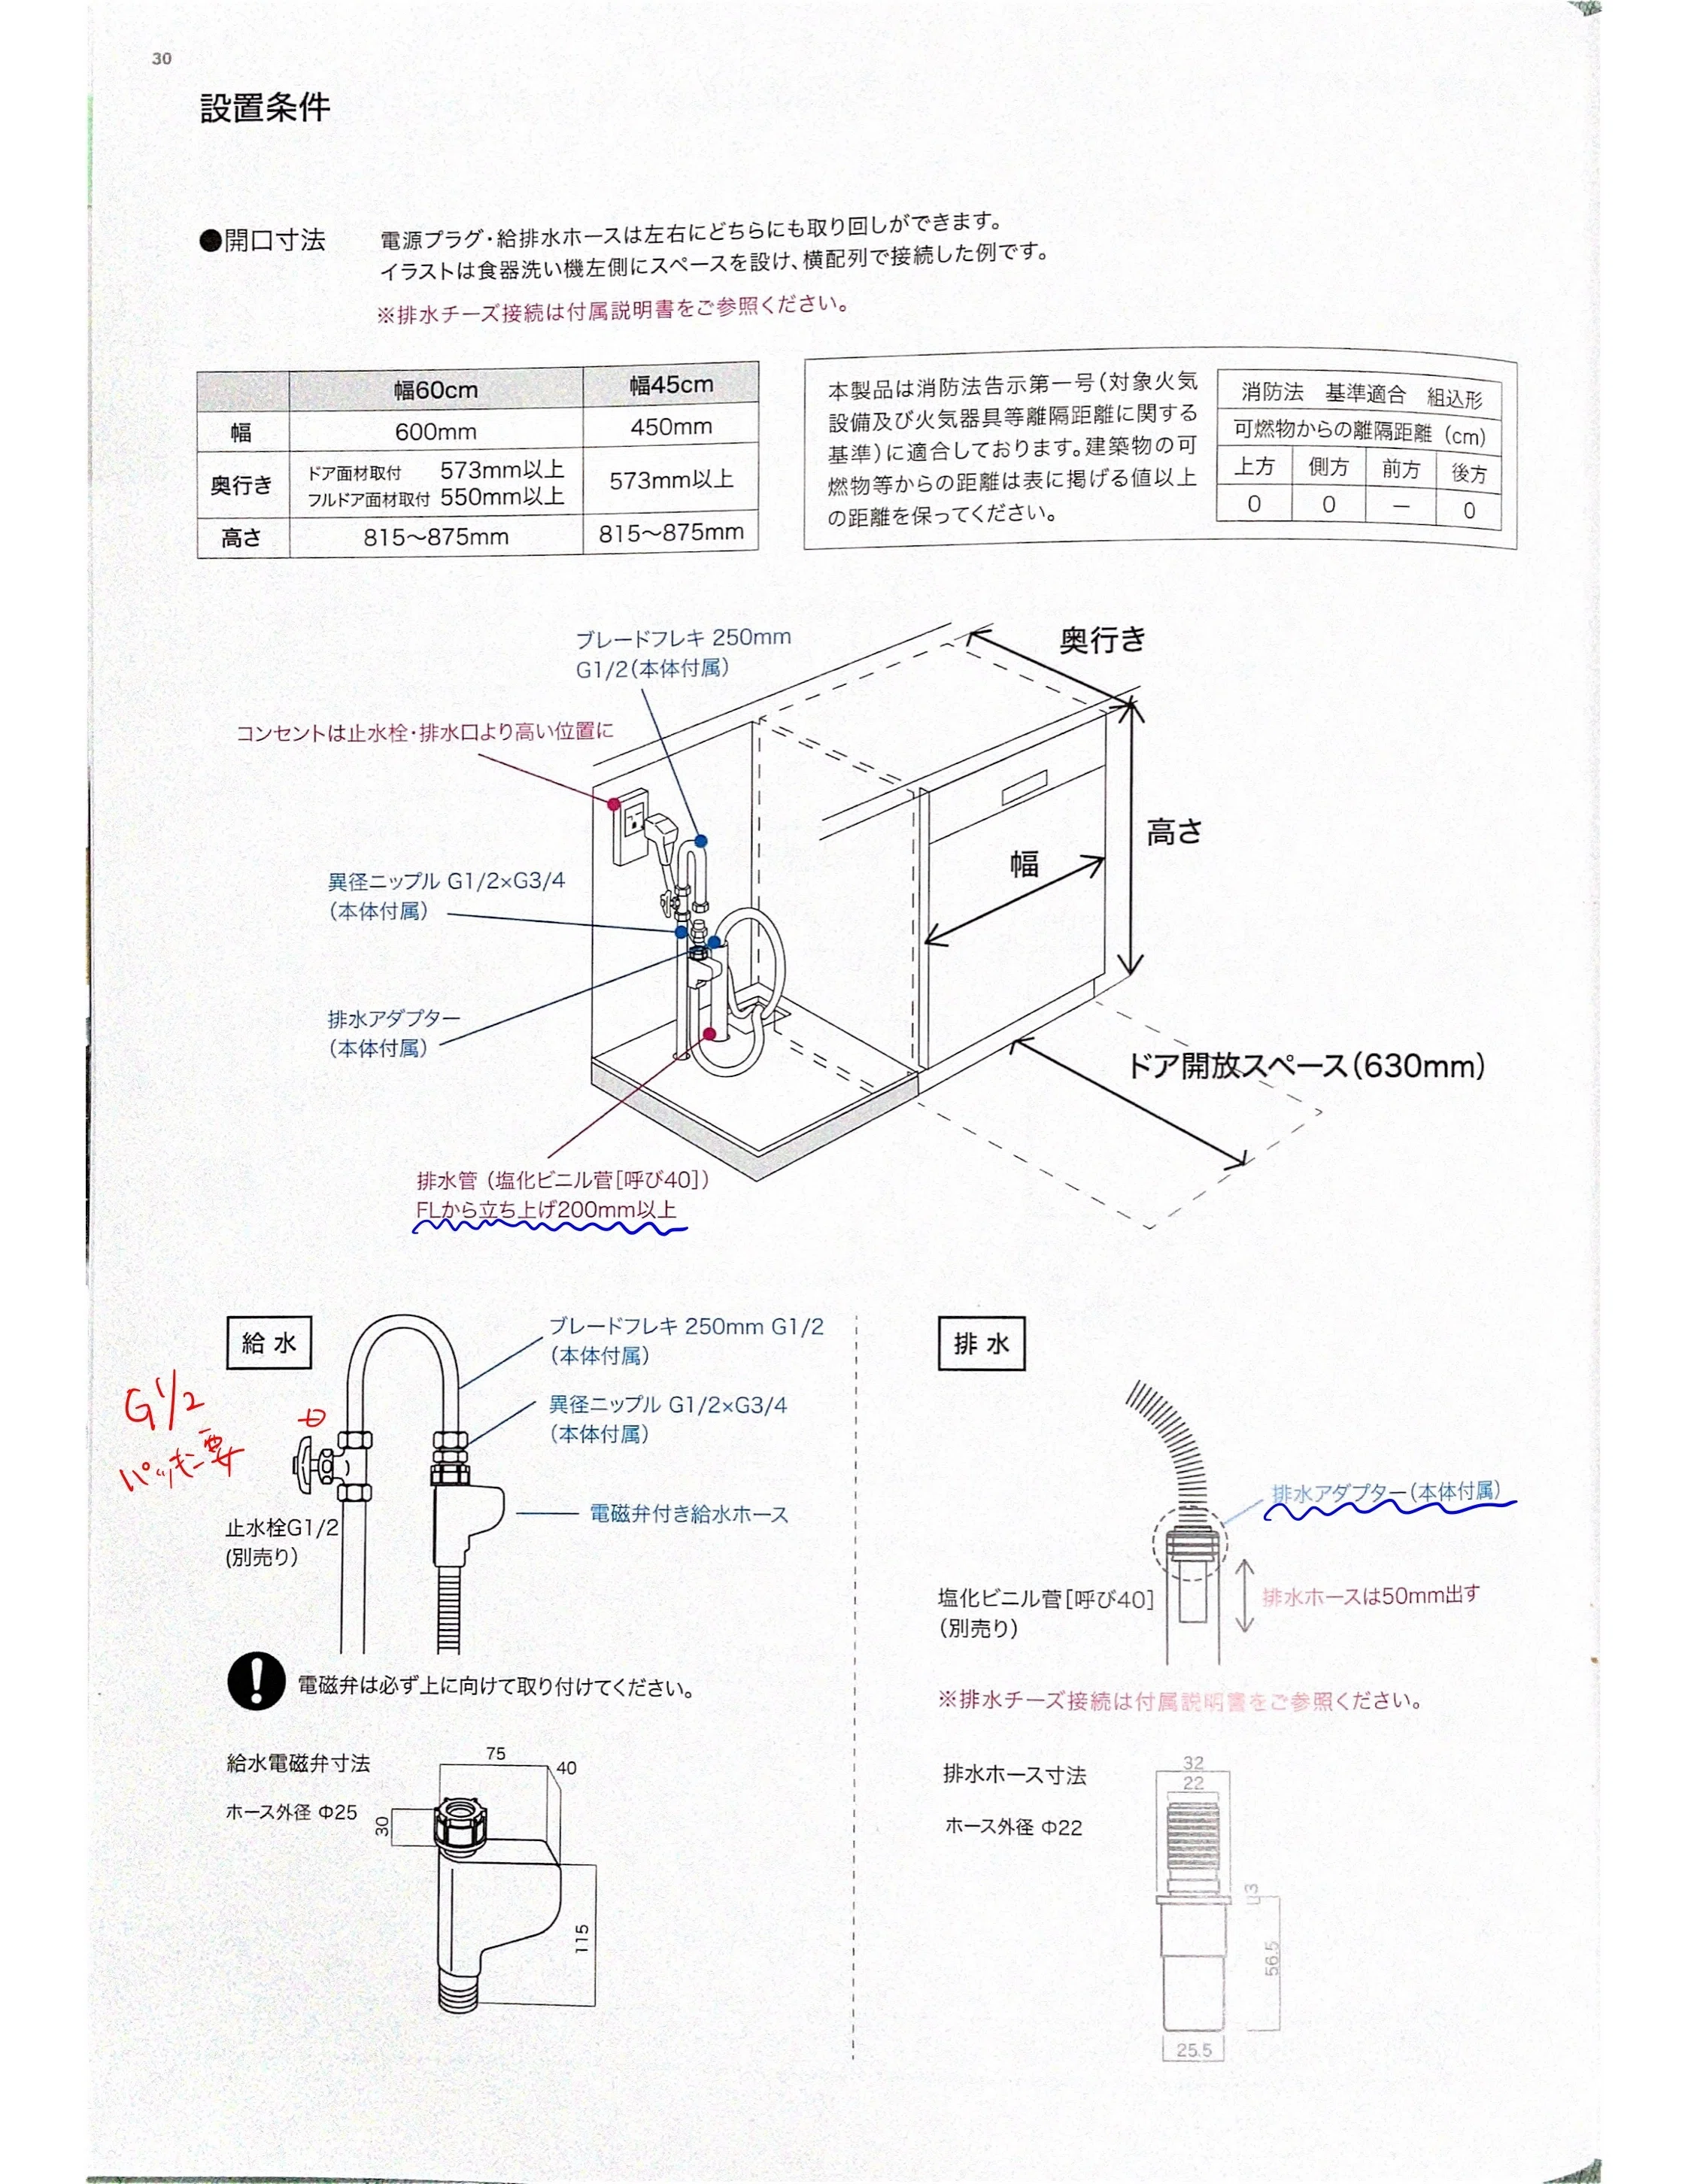 30
設置条件
●開口寸法
電源プラグ・給排水ホースは左右にどちらにも取り回しができます。
イラストは食器洗い機左側にスペースを設け、横配列で接続した例です。
※排水チーズ接続は付属説明書をご参照ください。
幅60cm 幅45cm
幅 600mm 450mm
奥行き ドア面材取付 573mm以上 573mm以上
フルドア面材取付 550mm以上
高さ 815〜875mm 815〜875mm
本製品は消防法告示第一号(対象火気
設備及び火気器具等離隔距離に関する
基準)に適合しております。建築物の可
燃物等からの距離は表に掲げる値以上
の距離を保ってください。
消防法 基準適合 組込形
可燃物からの離隔距離(cm)
上方 側方 前方 後方
0 0 ー 0
ブレードフレキ 250mm
G1/2(本体付属)
奥行き
コンセントは止水栓・排水口より高い位置に
高さ
幅
異径ニップル G1/2×G3/4
(本体付属)
排水アダプター
(本体付属)
ドア開放スペース(630mm)
排水管(塩化ビニル菅[呼び40])
FLから立ち上げ200mm以上
給水
ブレードフレキ 250mm G1/2
(本体付属)
異径ニップル G1/2×G3/4
(本体付属)
G1/2
パッキン要
電磁弁付き給水ホース
止水栓G1/2
(別売り)
電磁弁は必ず上に向けて取り付けてください。
給水電磁弁寸法
ホース外径 Φ25
75
40
30
115
排水
排水アダプター(本体付属)
塩化ビニル菅[呼び40]
(別売り)
排水ホースは50mm出す
※排水チーズ接続は付属説明書をご参照ください。
排水ホース寸法
ホース外径 Φ22
32
22
3
56.5
25.5